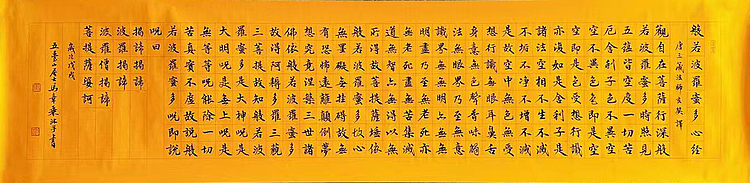 般若波羅蜜多心經
唐三藏法師玄奘譯
觀自在菩薩行深般
若波羅蜜多時照見
五蘊皆空度一切苦
厄舍利子色不異空
空不異色色即是空
空即是色受想行識
亦復如是舍利子是
諸法空相不生不滅
不垢不净不增不減
是故空中無色無受
想行識無眼耳鼻舌
身意無色聲香味觸
法無眼界乃至無意
識界無無明亦無無
明盡乃至無老死亦
無老死盡無苦集滅
道無智亦無得以無
所得故菩提薩埵依
般若波羅蜜多故心
無罣礙無罣礙故無
有恐怖遠離顛倒夢
想究竟涅槃三世諸
佛依般若波羅蜜多
故得阿耨多羅三藐
三菩提故知般若波
羅蜜多是大神呪是
大明呪是無上呪是
無等等呪能除一切
苦真實不虛故說般
若波羅蜜多呪即說
呪曰
揭諦揭諦
波羅揭諦
波羅僧揭諦
菩提薩婆訶
歲次戊戌